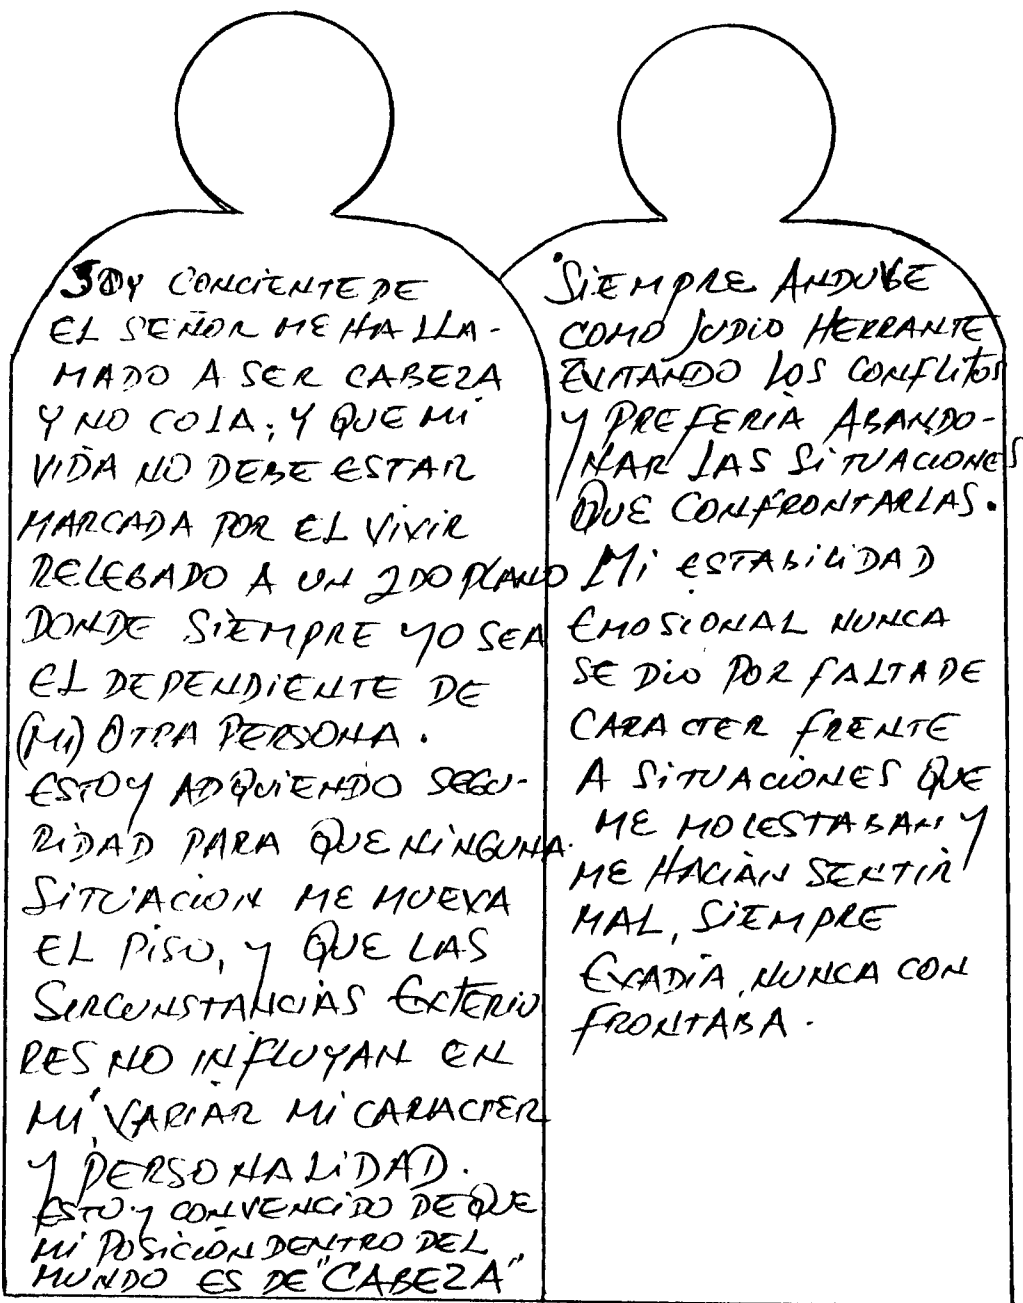 SOY CONCIENTE DE
EL SEÑOR ME HA LLA-
MADO A SER CABEZA
Y NO COLA; Y QUE MI
VIDA NO DEBE ESTAR
MARCADA POR EL VIVIR
RELEGADO A UN 2DO PLANO
DONDE SIEMPRE YO SEA
EL DEPENDIENTE DE
(MI) OTRA PERSONA.
ESTOY ADQUIENDO SEGU-
RIDAD PARA QUE NINGUNA
SITUACION ME MUEVA
EL PISO, Y QUE LAS
SIRCUNSTANCIAS EXTERIO
RES NO INFLUYAN EN
MI, VARIAR MI CARACTER
Y PERSONALIDAD.
ESTOY CONVENCIDO DE QUE
MI POSICIÓN DENTRO DEL
MUNDO ES DE "CABEZA"
SIEMPRE ANDUVE
COMO JUDIO HERRANTE
EVITANDO LOS CONFLITOS
Y PREFERIA ABANDO-
NAR LAS SITUACIONES
QUE CONFRONTARLAS.
MI ESTABILIDAD
EMOSIONAL NUNCA
SE DIO POR FALTA DE
CARACTER FRENTE
A SITUACIONES QUE
ME MOLESTABAN Y
ME HACIAN SENTIR
MAL, SIEMPRE
EVADIA, NUNCA CON
FRONTABA.